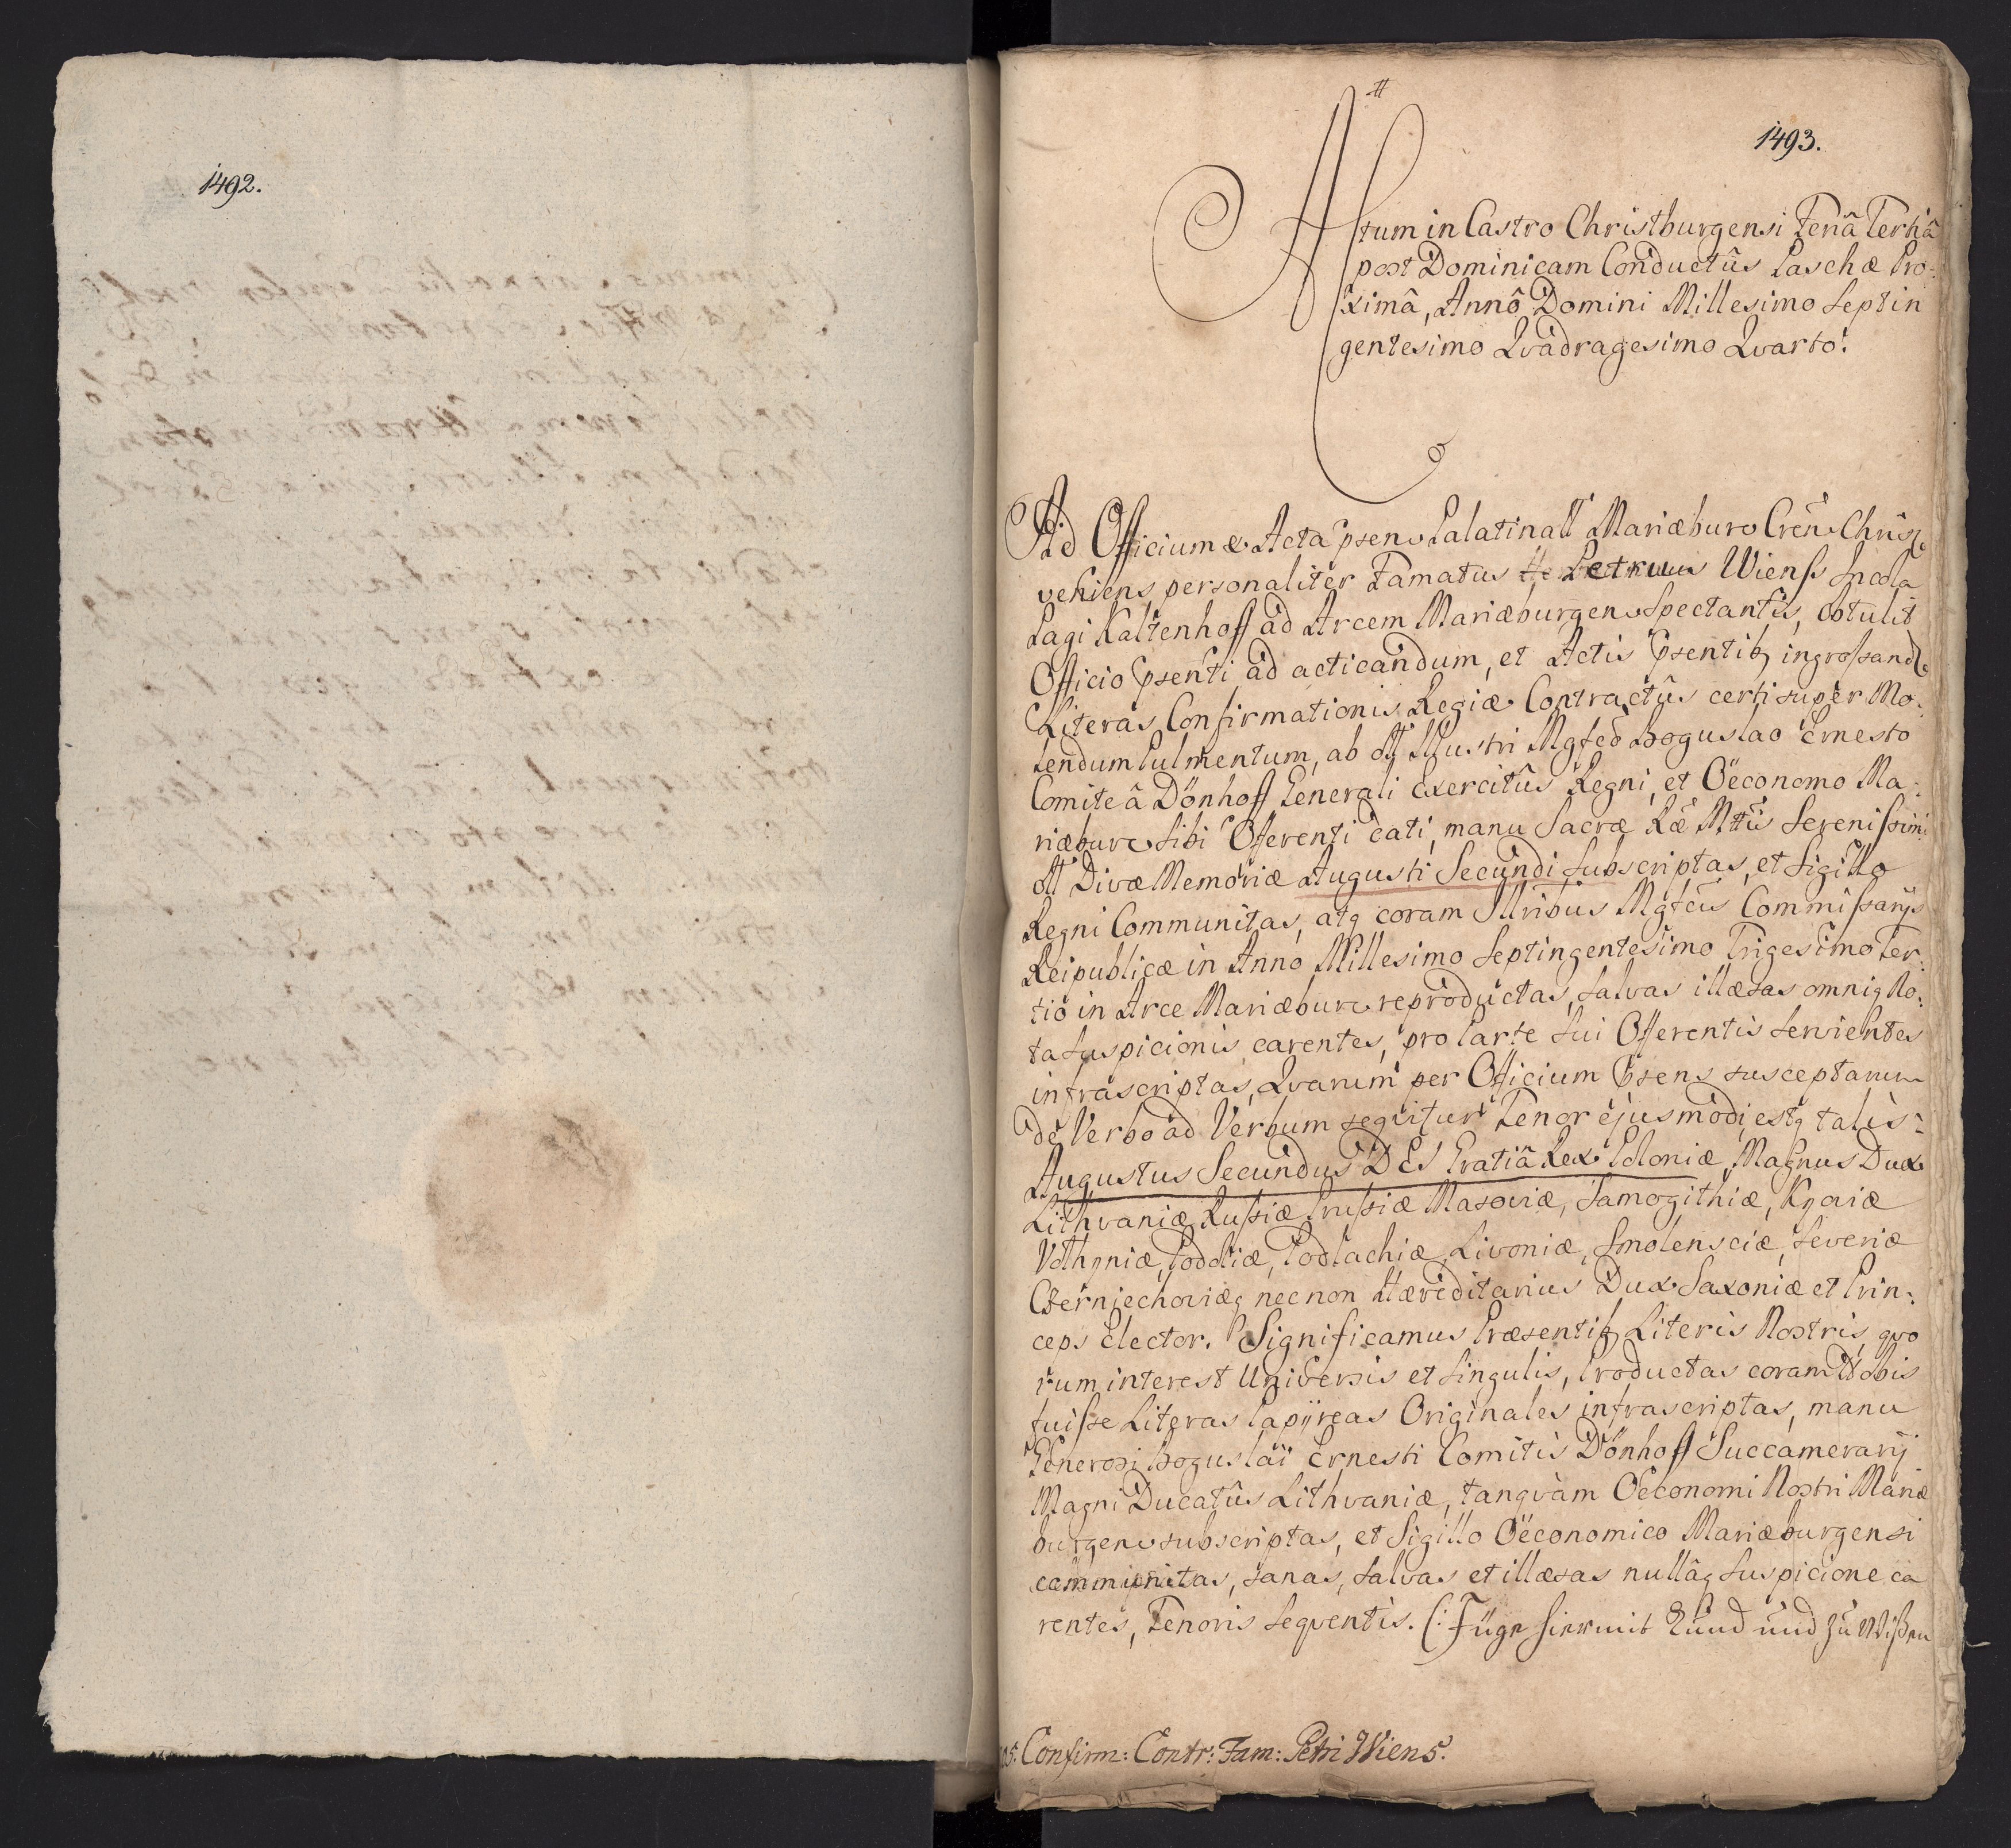 1492.
1493.
Actum in Castro Christburgensi Feriâ Tertiâ
post Dominicam Conductûs Paschæ Pro:
ximâ, Annô Domini Millesimo Septin
gentesimo Qvadragesimo Qvarto.
Ad Officium & Acta Psens Palatinall Mariæburg Cren Christ
veniens personaliter Famatus Petrus Wienss Incola
Pagi Kaltenhoff ad Arcem Mariæburgen Spectantis, Obtulit
Officio Psenti ad acticandum, et Actis Psentibq ingrossand
Literas Confirmationis Regiæ Contractûs certi super Mo:
lendum Pulmentum, ab Oll Illustri Mgfco Boguslao Ernesto
Comite â Dönhoff Generali Exercitûs Regni, et Oëconomo Ma:
riæburg Sibi Offerenti dati, manu Sacræ Ræ Mttis Serenissimi
Oll Divæ Memoriæ Augusti Secundi Subscriptas, et Sigillo
Regni Communitas, atq coram Illribus Mgfcis Commissarijs
Reipublicæ in Anno Millesimo Septingentesimo Trigesimo Ter:
tio in Arce Mariæburg reproductas, salvas illæsas omniq No:
ta Suspicionis carentes, pro Parte Sui Offerentis servientes
infrascriptas, Qvarum per Officium Psens susceptarum
de Verbo ad Verbum seqvitur Tenor ejusmodi, estq talis:
Augustus Secundus DEI Gratiâ Rex Poloniæ, Magnus Dux
Lithvaniæ, Russiæ, Prussiæ Masoviæ, Samogithiæ, Kijoviæ
Volhyniæ, Podoliæ, Podlachiæ, Livoniæ, Smolensciæ, Severiæ
Czerniechoviæq necnon Hæreditarius Dux Saxoniæ et Prin:
ceps Elector. Significamus Præsentibq Literis Nostris, qvo
rum interest Universis et Singulis, Productas coram Nobis
fuisse Literas Papÿreas Originales infrascriptas, manu
Generosi Boguslai Ernesti Comitis Dönhoff Succamerarij
Magni Ducatûs Lithvaniæ, tanqvam Oeconomi Nostri Mariæ
burgen subscriptas, et Sigillo Oëconomico Mariæburgensi
communitas, sanas, salvas et illæsas nullâq Suspicione ca
rentes, Tenoris Seqventis. (: Füge hiermit Kund und zu Wißen
05. Confirm: Contr: Fam: Petri Wiens.